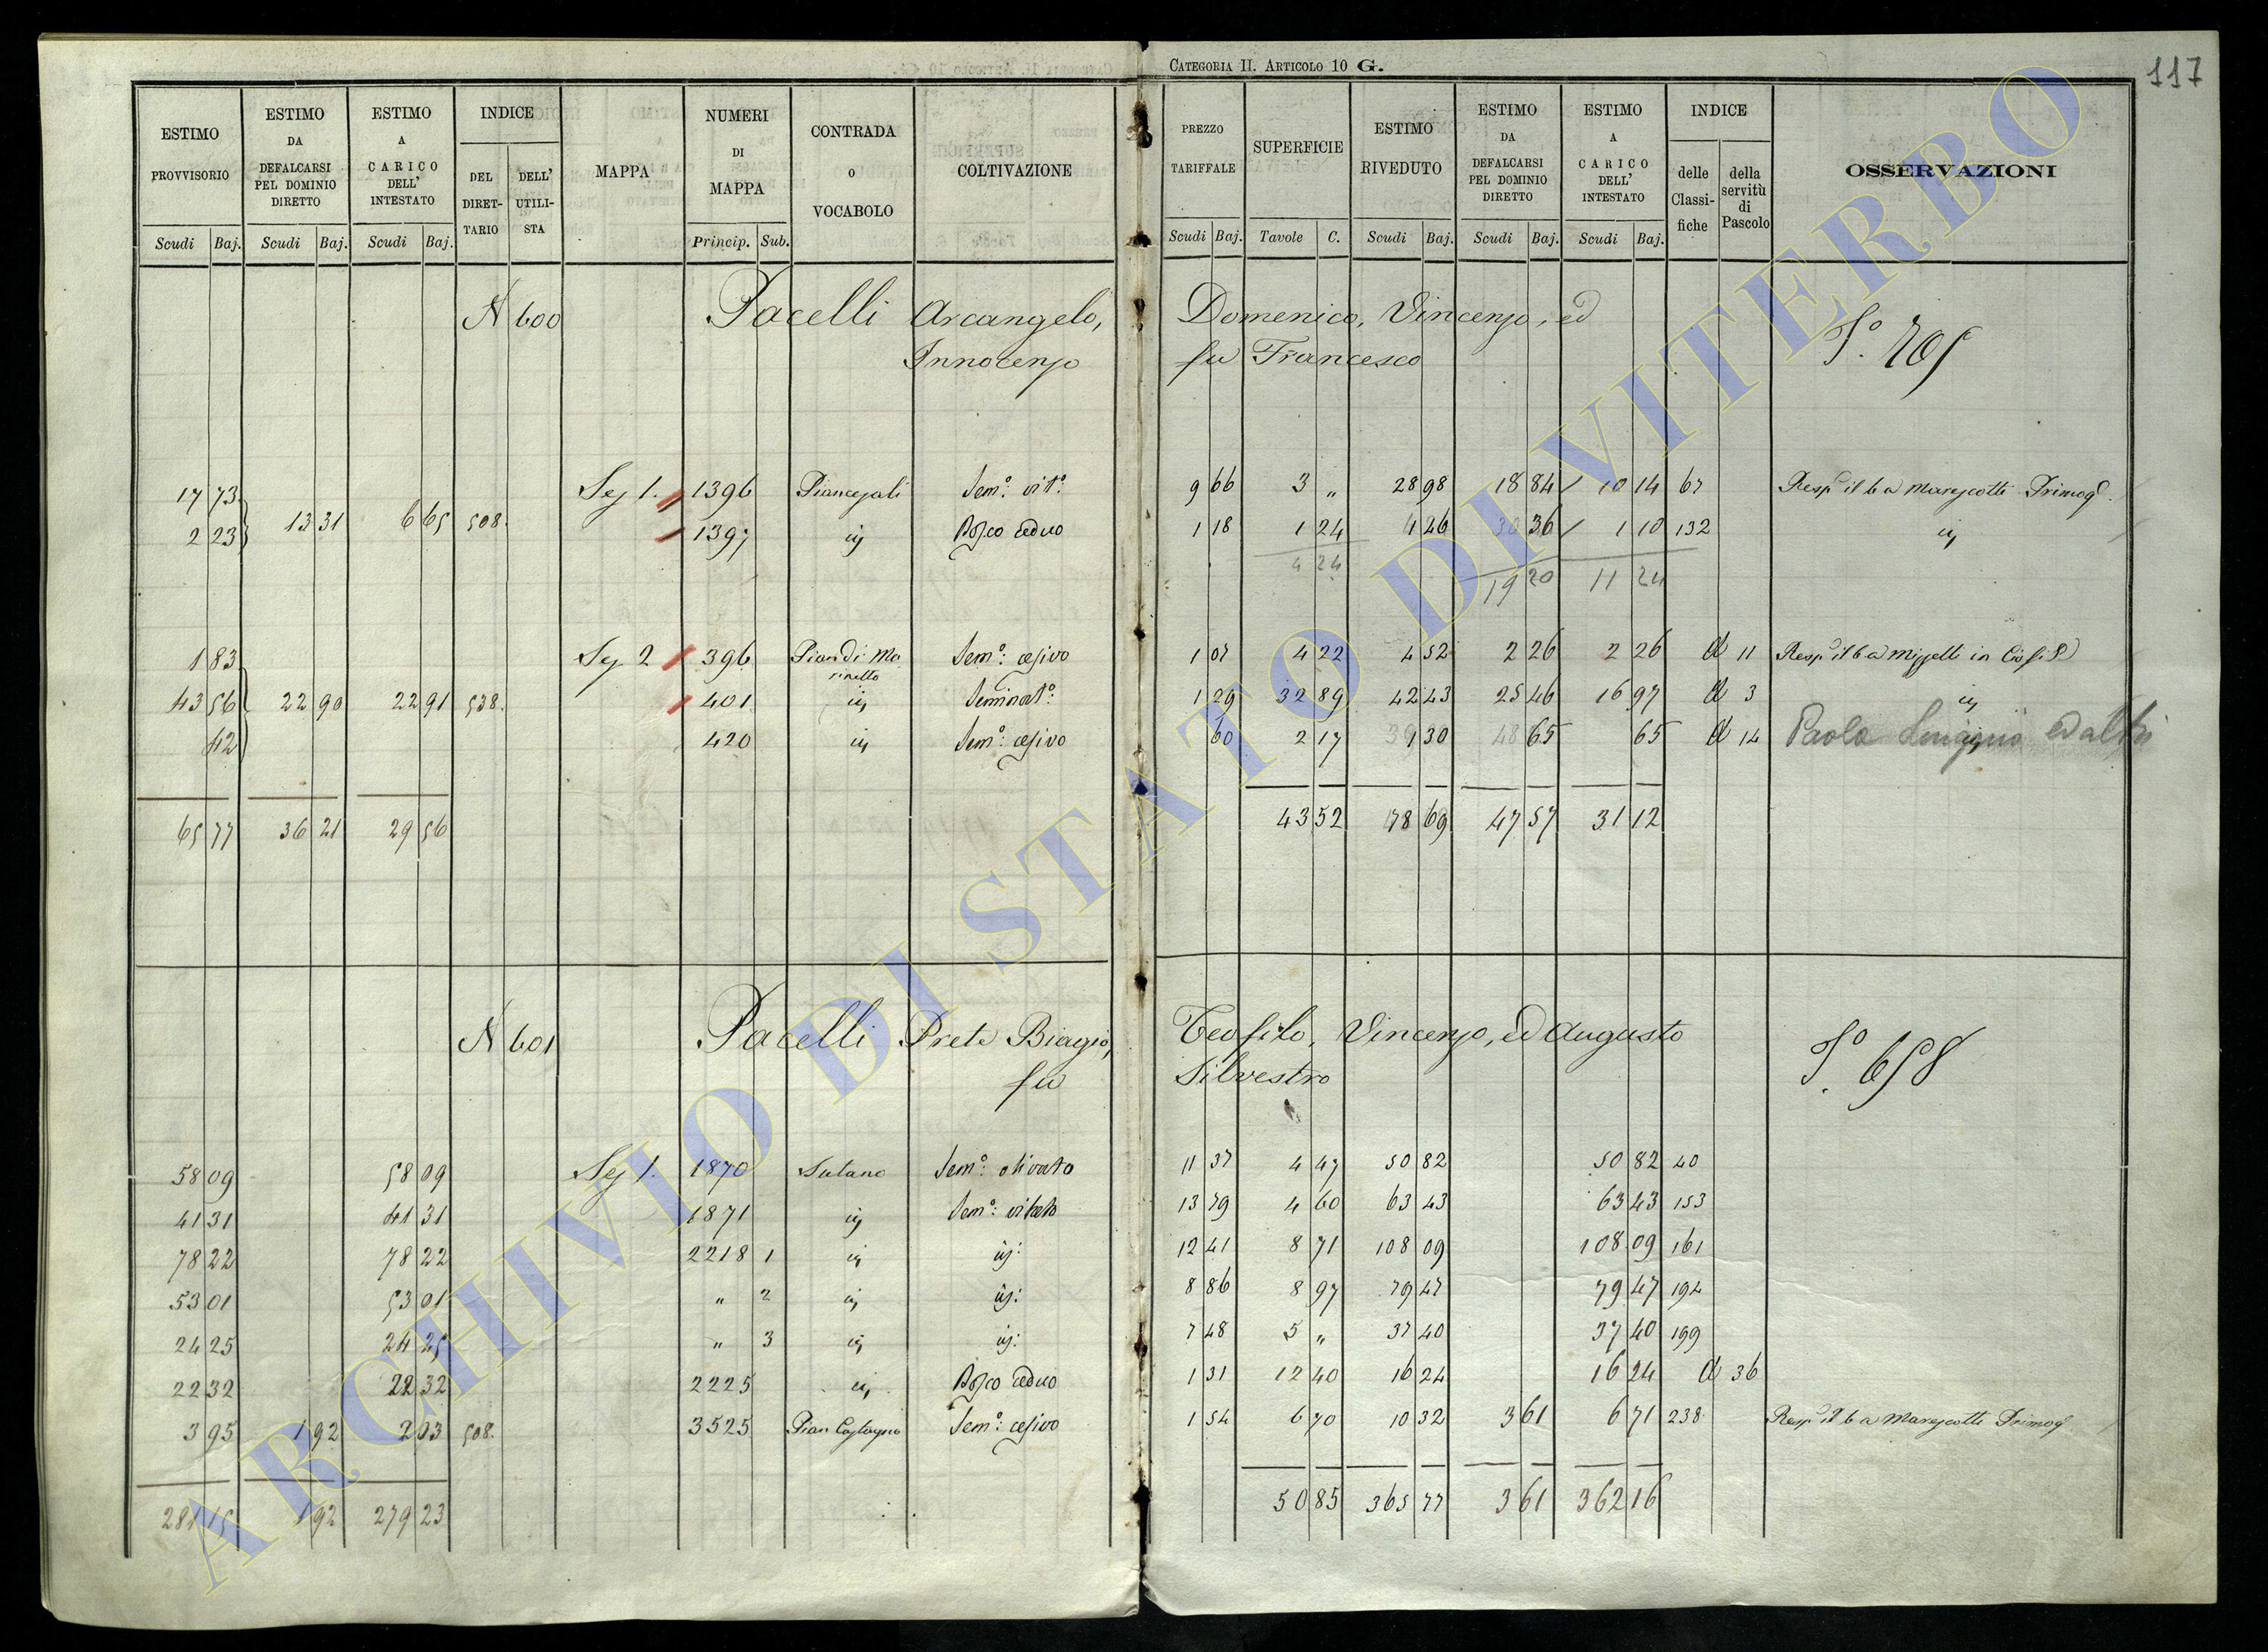 CATEGORIA II. ARTICOLO 10 G.
117
ESTIMO PROVVISORIO Scudi Baj. ESTIMO DA DEFALCARSI PEL DOMINIO DIRETTO Scudi Baj. ESTIMO A CARICO DELL' INTESTATO Scudi Baj. INDICE DEL DIRETTARIO DELL' UTILISTA MAPPA NUMERI DI MAPPA Princip. Sub. CONTRADA O VOCABOLO COLTIVAZIONE PREZZO TARIFFALE Scudi Baj. SUPERFICIE Tavole C. ESTIMO RIVEDUTO Scudi Baj. ESTIMO DA DEFALCARSI PEL DOMINIO DIRETTO Scudi Baj. ESTIMO A CARICO DELL' INTESTATO Scudi Baj. INDICE delle Classifiche della servitù di Pascolo OSSERVAZIONI
N 600 Pacelli Arcangelo, Domenico, Vincenzo, ed
Innocenzo fu Francesco
17 73 Sez 1. 1396 Sem.º: vit.º: 9 66 3 „ 28 98 18 84 10 14 67 Primog.
13 31 6 65 508.
2 23 1397 Bosco ceduo 1 18 1 24 4 26 36 1 10 132
4 24 19 20 11 24
1 83 Sez 2 396 Pian di Marinetto Sem.º: cesivo 1 07 4 22 4 52 2 26 2 26 11
43 56 22 90 22 91 538. 401 Seminat.º: 1 29 32 89 42 43 25 46 16 97 3
42 420 Sem.º: cesivo 60 2 17 1 30 65 65 14 Paolo ed altri
65 77 36 21 29 56 43 52 78 69 47 57 31 12
N 601 Pacelli Prete Biagio, Teofilo, Vincenzo, ed Augusto
fu Silvestro 658
58 09 58 09 Sez 1. 1870 Sutano Sem.º: olivato 11 37 4 47 50 82 50 82 40
41 31 41 31 1871 Sem.º: vitato 13 79 4 60 63 43 63 43 153
78 22 78 22 2218 1 12 41 8 71 108 09 108 09 161
53 01 53 01 „ 2 8 86 8 97 79 47 79 47 194
24 25 24 25 „ 3 7 48 5 „ 37 40 37 40 199
22 32 22 32 2225 Bosco ceduo 1 31 12 40 16 24 16 24 36
3 95 1 92 2 03 508. 3525 Pian Castagno Sem.º: cesivo 1 54 6 70 10 32 3 61 6 71 238 Primog.
281 15 1 92 279 23 50 85 365 77 3 61 362 16
ARCHIVIO DI STATO DI VITERBO